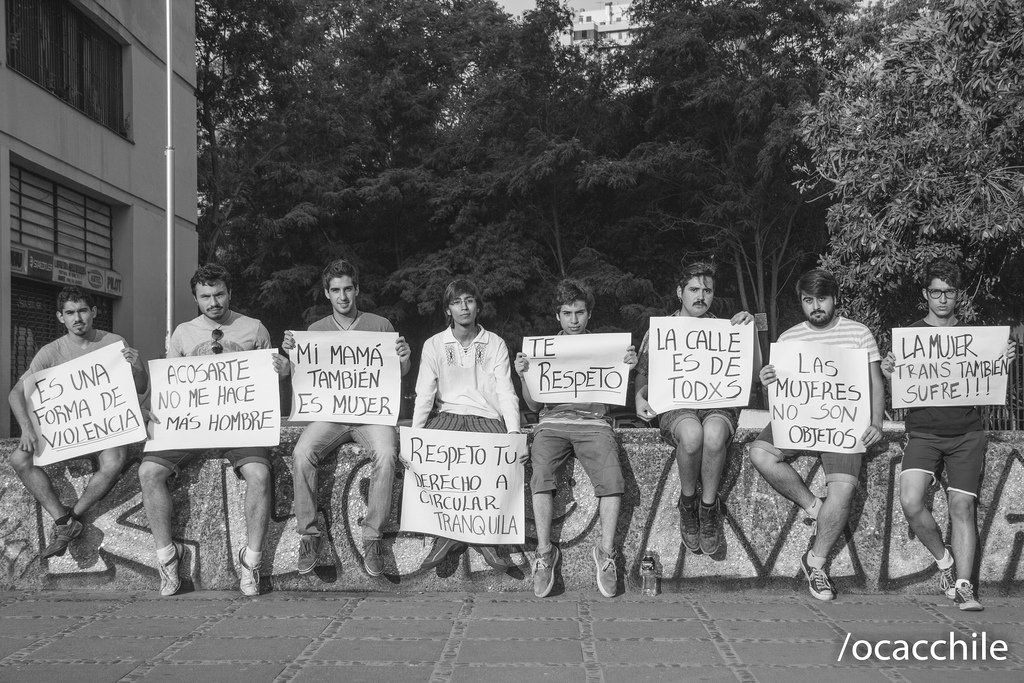 ES UNA
FORMA DE
VIOLENCIA
ACOSARTE
NO ME HACE
MÁS HOMBRE
MI MAMÁ
TAMBIÉN
ES MUJER
RESPETO TU
DERECHO A
CIRCULAR
TRANQUILA
TE
RESPETO
LA CALLE
ES DE
TODXS
LAS
MUJERES
NO SON
OBJETOS
LA MUJER
TRANS TAMBIÉN
SUFRE!!!
PILOT
/ocacchile